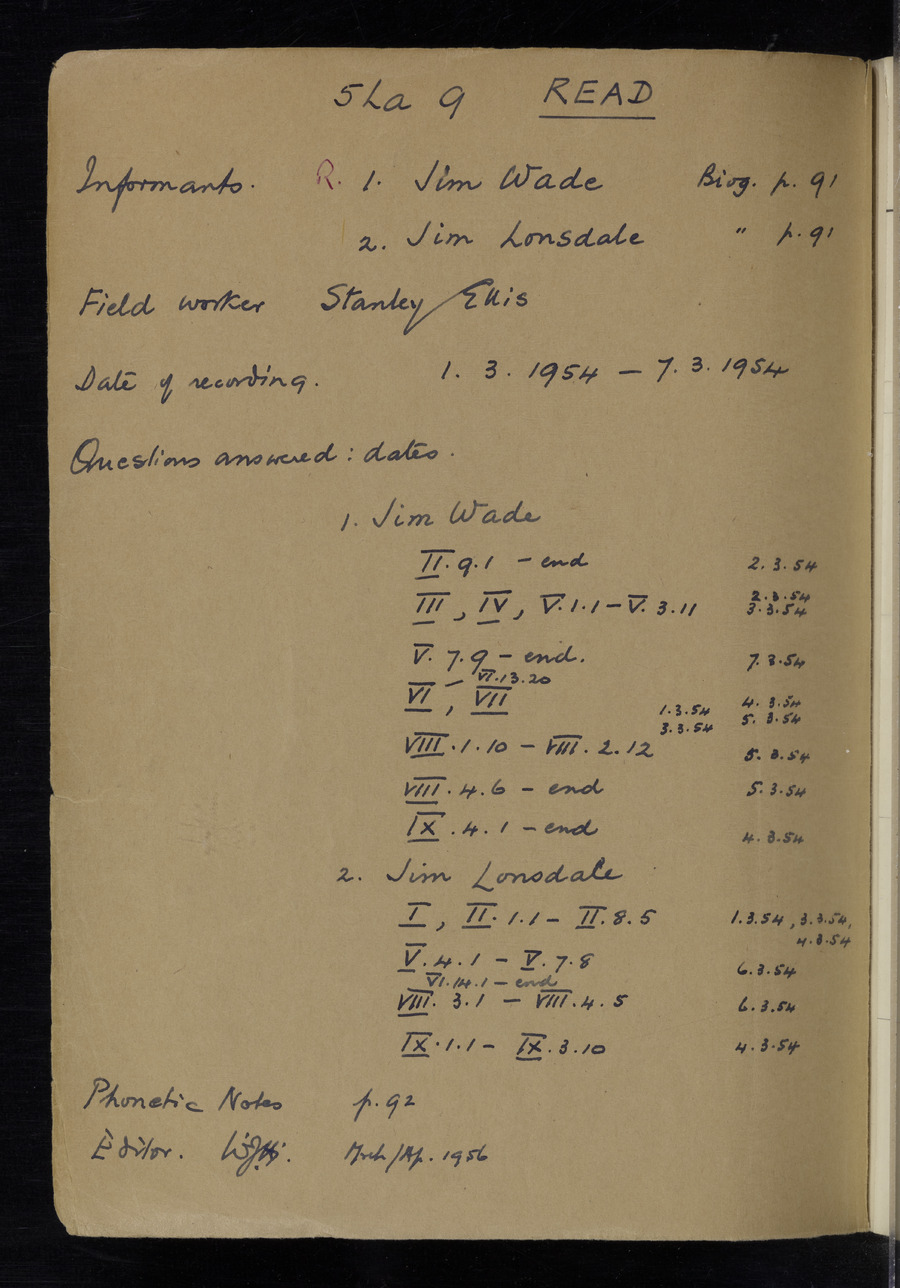 5La 9 READ
Informants. R. 1. Jim Wade Biog. p. 91
2. Jim Lonsdale " p. 91
Field worker Stanley Ellis
Date of recording. 1. 3. 1954 — 7. 3. 1954
Questions answered : dates.
1. Jim Wade
II. 9. 1 – end 2. 3. 54
2. 3. 54
III, IV, V. 1. 1 – V. 3. 11 3. 3. 54
V. 7. 9 – end. 7. 3. 54
– VI. 13. 20
VI, VII 1. 3. 54 4. 3. 54
3. 3. 54 5. 3. 54
VIII. 1. 10 – VIII. 2. 12 5. 3. 54
VIII. 4. 6 – end 5. 3. 54
IX. 4. 1 – end 4. 3. 54
2. Jim Lonsdale
I, II. 1. 1 – II. 8. 5 1. 3. 54, 3. 3. 54,
4. 3. 54
V. 4. 1 – V. 7. 8 6. 3. 54
VI. 14. 1 – end
VIII. 3. 1 – VIII. 4. 5 6. 3. 54
IX. 1. 1 – IX. 3. 10 4. 3. 54
Phonetic Notes p. 92
Editor. Mrch/Ap. 1956